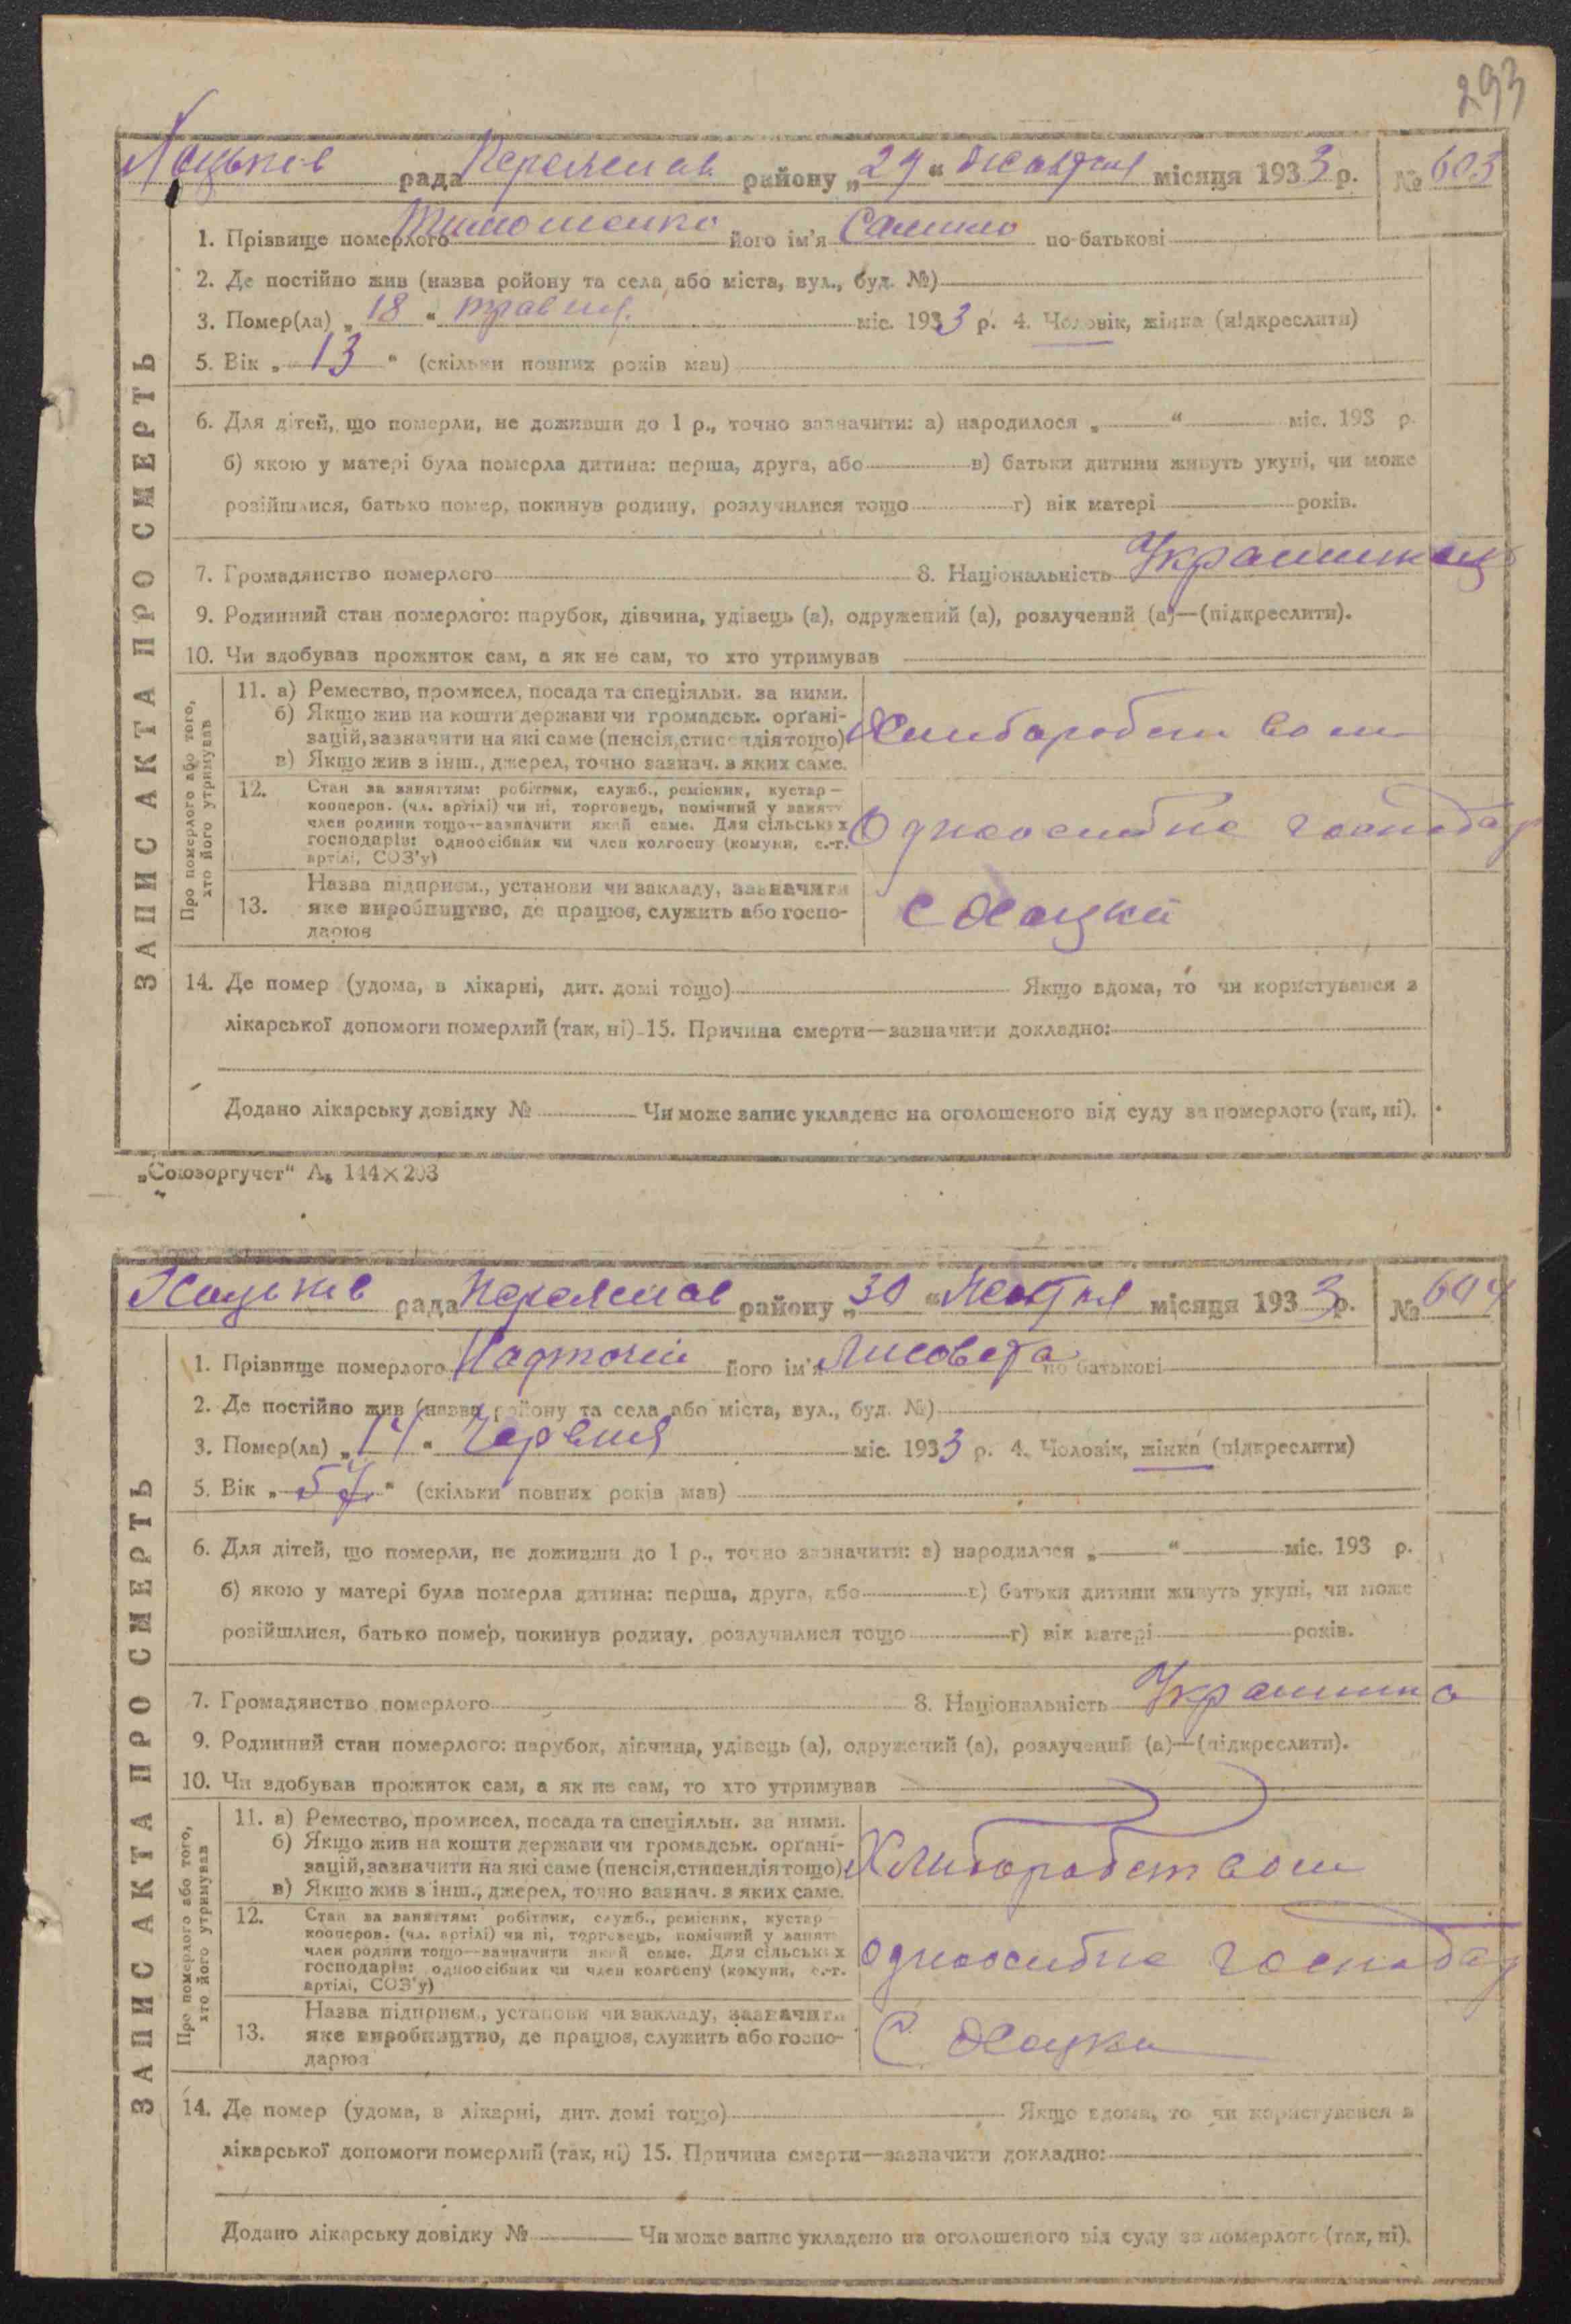 293
Хоцьків рада Переяслав району „29“ жовтня місяця 1933 р. № 603
1. Прізвище померлого Тимошенко його ім'я Самійло по-батькові
2. Де постійно жив (назва ройону та села або міста, вул., буд. №)
3. Помер(ла) „18“ травня міс. 1933 р. 4. Чоловік, жінка (підкреслити)
5. Вік „13“ (скільки повних років мав)
6. Для дітей, що померли, не доживши до 1 р., точно зазначити: а) народилося „ “ міс. 193 р.
б) якою у матері була померла дитина: перша, друга, або в) батьки дитини живуть укупі, чи може
розійшлися, батько помер, покинув родину, розлучилися тощо г) вік матері років.
7. Громадянство померлого 8. Національність Украиинець
9. Родинний стан померлого: парубок, дівчина, удівець (а), одружений (а), розлучений (а)—(підкреслити).
10. Чи здобував прожиток сам, а як не сам, то хто утримував
ЗАПИС АКТА ПРО СМЕРТЬ
Про померлого або того, хто його утримував
11. а) Ремество, промисел, посада та спеціяльн. за ними.
б) Якщо жив на кошти держави чи громадськ. орґані-
зацій, зазначити на які саме (пенсія, стипендія тощо)
в) Якщо жив з інш., джерел, точно зазнач. з яких саме.
Хлиборобством
12. Стан за заняттям: робітник, служб., ремісник, кустар—
кооперов. (чл. артілі) чи ні, торговець, помічний у занятт
член родини тощо—зазначити який саме. Для сільських
господарів: одноосібник чи член колгоспу (комуни, с.-г.
артілі, СОЗ'у)
Одноосибне господар
13. Назва підприєм., установи чи закладу, зазначити
яке виробництво, де працює, служить або госпо-
дарює
с Хоцки
14. Де помер (удома, в лікарні, дит. домі тощо) Якщо вдома, то чи користувався з
лікарської допомоги померлий (так, ні) 15. Причина смерти—зазначити докладно:
Додано лікарську довідку № Чи може запис укладено на оголошеного від суду за померлого (так, ні).
„Союзоргучет“ А₅ 144×203
Хоцьків рада Переяслав району „30“ Жовтня місяця 1933 р. № 604
1. Прізвище померлого його ім'я Лисовета по батькові
2. Де постійно жив (назва району та села або міста, вул., буд. №)
3. Помер(ла) „14“ Червня міс. 1933 р. 4. Чоловік, жінка (підкреслити)
5. Вік „57“ (скільки повних років мав)
6. Для дітей, що померли, не доживши до 1 р., точно зазначити: а) народилося „ “ міс. 193 р.
б) якою у матері була померла дитина: перша, друга, або в) батьки дитини живуть укупі, чи може
розійшлися, батько помер, покинув родину, розлучилися тощо г) вік матері років.
7. Громадянство померлого 8. Національність Украиинка
9. Родинний стан померлого: парубок, дівчина, удівець (а), одружений (а), розлучений (а)—(підкреслити).
10. Чи здобував прожиток сам, а як не сам, то хто утримував
ЗАПИС АКТА ПРО СМЕРТЬ
Про померлого або того, хто його утримував
11. а) Ремество, промисел, посада та спеціяльн. за ними.
б) Якщо жив на кошти держави чи громадськ. орґані-
зацій, зазначити на які саме (пенсія, стипендія тощо)
в) Якщо жив з інш., джерел, точно зазнач. з яких саме.
Хлиборобством
12. Стан за заняттям: робітник, служб., ремісник, кустар
кооперов. (чл. артілі) чи ні, торговець, помічний у занят
член родини тощо—зазначити який саме. Для сільських
господарів: одноосібник чи член колгоспу (комуни, с.-г.
артілі, СОЗ'у)
одноосибне господар
13. Назва підприєм., установи чи закладу, зазначити
яке виробництво, де працює, служить або госпо-
дарює
С Хоцки
14. Де помер (удома, в лікарні, дит. домі тощо) Якщо вдома, то чи користувався з
лікарської допомоги померлий (так, ні) 15. Причина смерти—зазначити докладно:
Додано лікарську довідку № Чи може запис укладено на оголошеного від суду за померлого (так, ні).